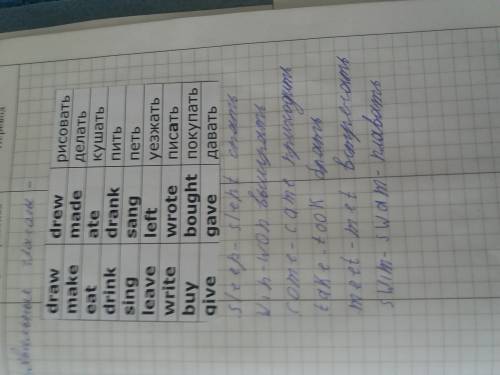 глаголы -
draw drew рисовать
make made делать
eat ate кушать
drink drank пить
sing sang петь
leave left уезжать
write wrote писать
buy bought покупать
give gave давать
sleep - slept спать
win - won выигрывать
come - came приходить
take - took брать
meet - met встречать
swim - swam - плавать